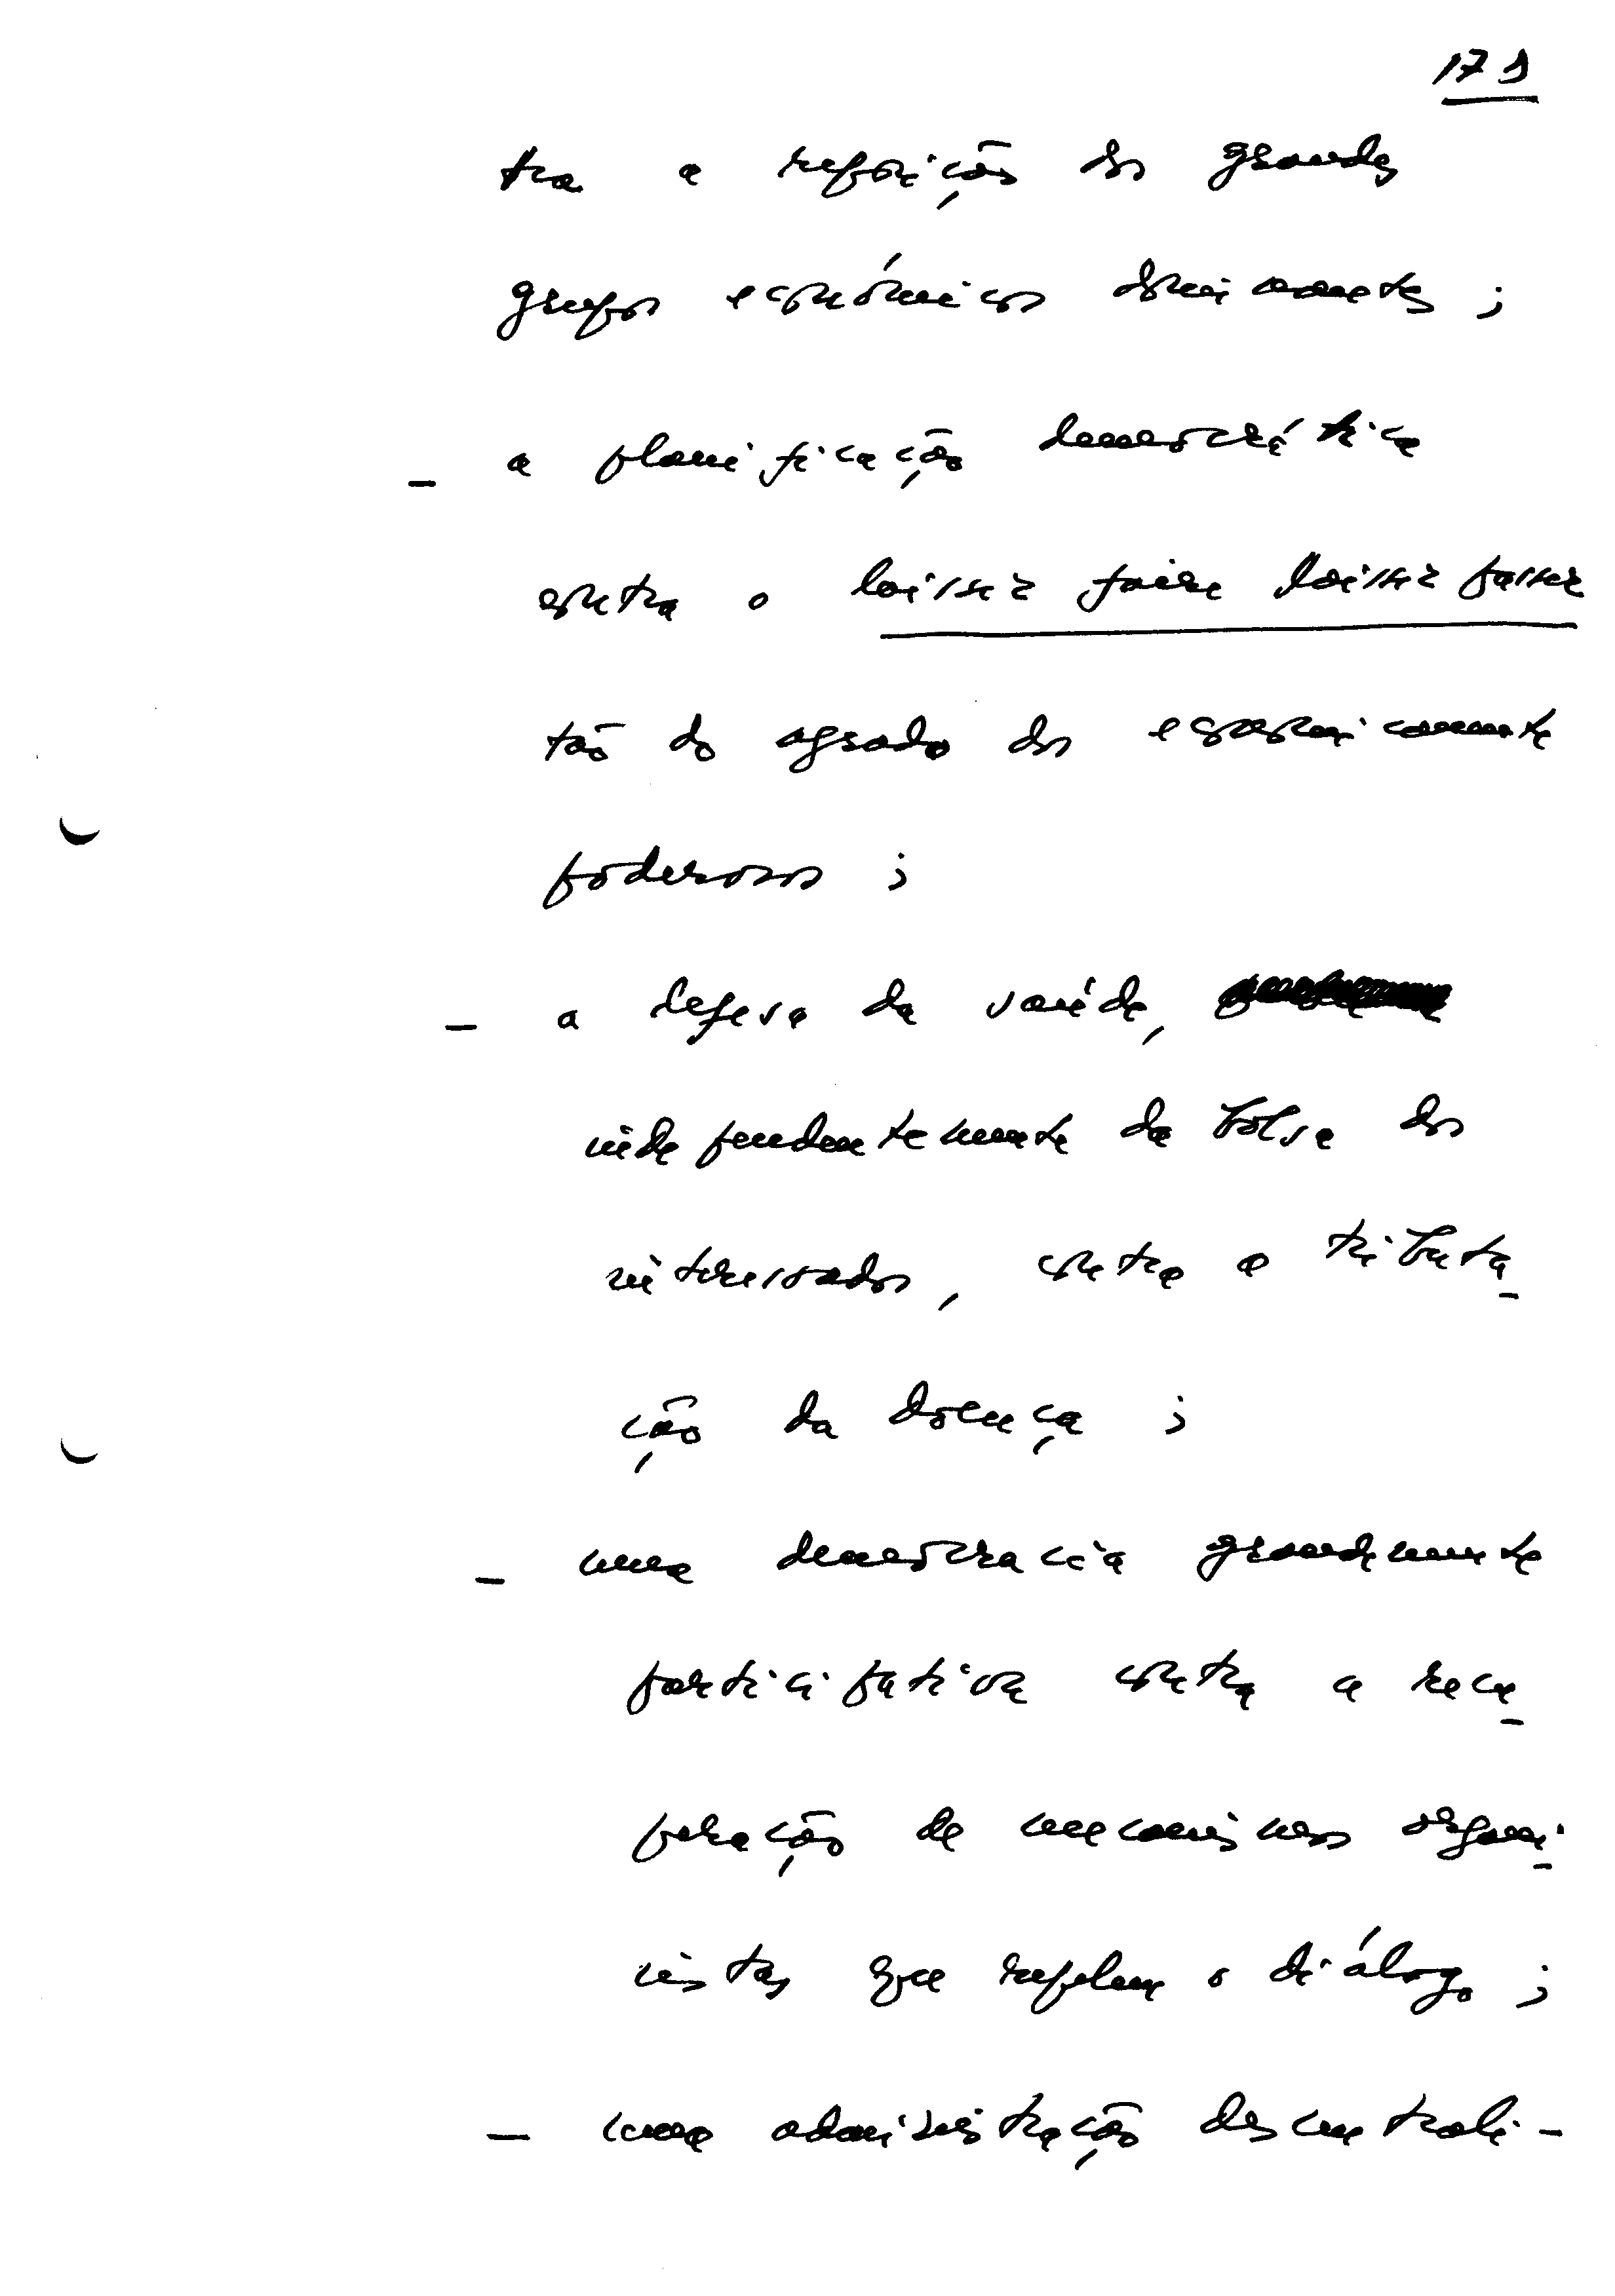 179
tra a reposição dos grandes
grupos económicos dominantes ;
- a planificação democrática
contra o laissez faire laissez passer
tão do agrado dos economicamente
poderosos ;
- a defesa da saúde,
independentemente da bolsa dos
interessados, contra a tributa-
ção da doença ;
- uma democracia grandemente
participativa contra a recu-
peração de mecanismos organi-
cistas que repelem o diálogo ;
- uma administração descentrali-